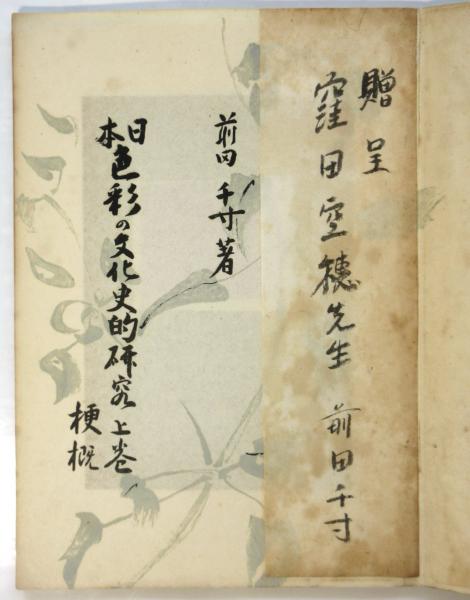 贈呈
窪田空穂先生 前田千寸
前田千寸著
日本色彩の文化史的研究上巻
梗概